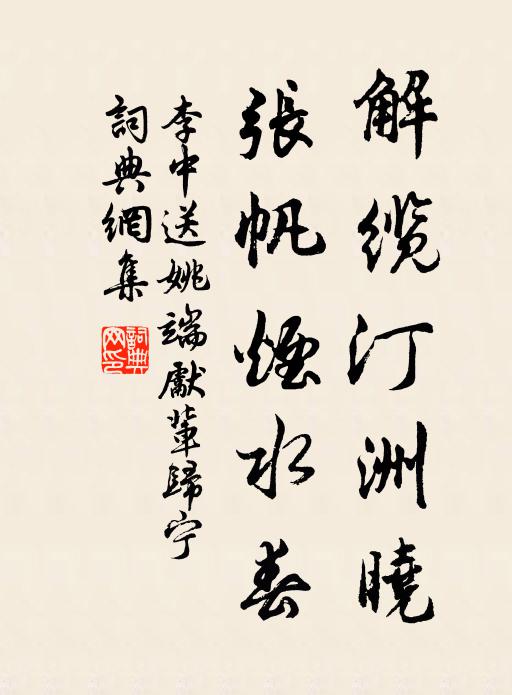 解缆汀洲曉
張帆煙水春
李中送姚端獻輩歸宁
詞典網集
詞典網印